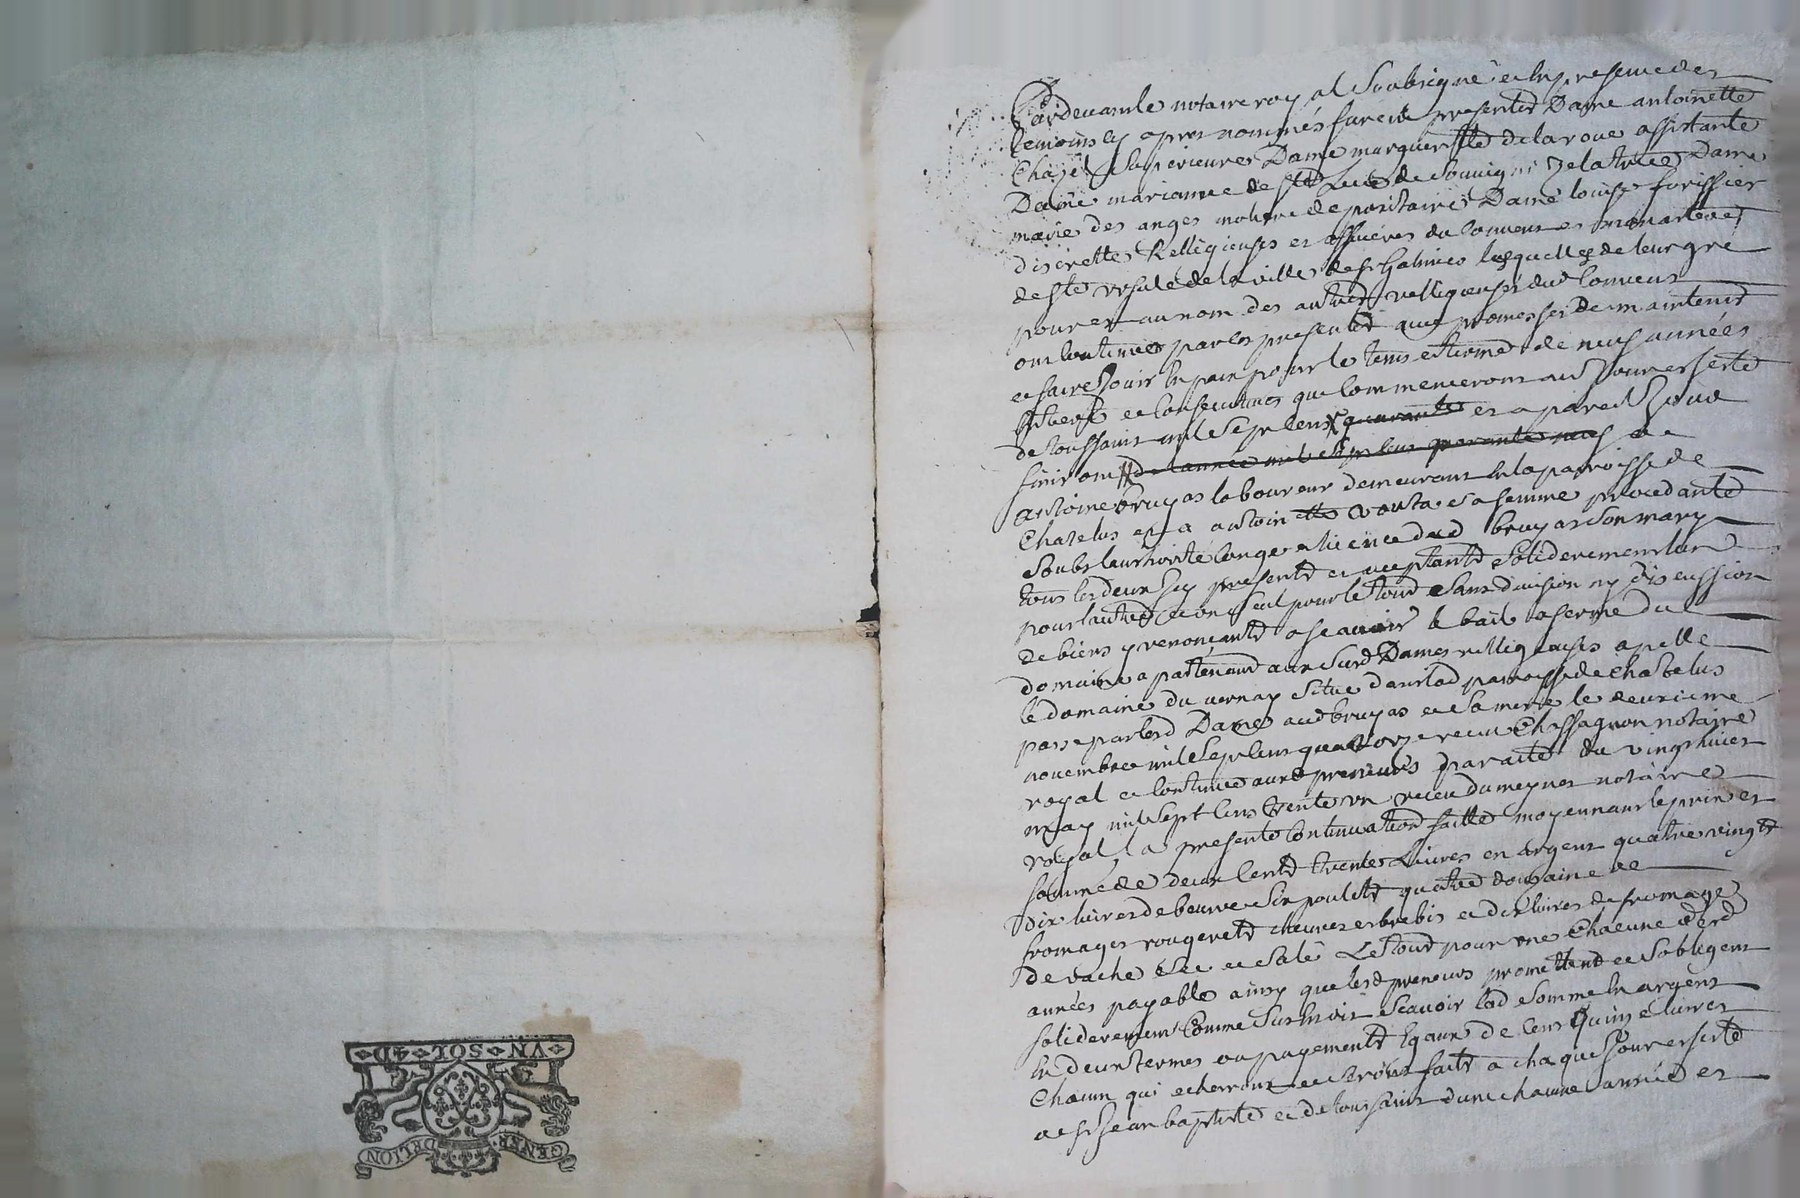 VN SOL 4 D
GENER DE LION
Pardevant le notaire royal soubsigné et en presence des
temoins cy apres nommés furent presentes Dame antoinette
Chazel superieure Dame margueritte de la roue assistante
Dame marianne de ste Luce de Souvigni zelatrice Dame
marie des anges depozitaire Dame louise forissier
discrette Relligieuses et officieres du Convent et monastere
de ste ursule de la ville de st Galmier lesquelles de leur gré
pour et au nom des autres relligieuses dud Convent
ont continué par ces presentes avec promesses de maintenir
et faire Jouir en paix pour le tems et terme de neuf années
entieres et consecutives qui commenceront au Jour et feste
de toussaint mil sept cens quarante et a pareil Jour
finiront de lannée mil sept cens quarante neuf a
antoine bruyas laboureur demeurant en la paroisse de
Chatelus et a antoinette sa femme procedante
soubs lauthorité conge et licence dud bruyas son mary
tous les deux icy presents et acceptants soliderement lun
pour lautre et un seul pour le tout sans division ny discussion
de biens y renonçants a scavoir le bail a ferme du
domaine apartenant aux susd Dames relligieuses apellé
le domaine du vernay situé dans lad paroisse de Chatelus
passé par lesd Dames aud bruyas et sa mere le deuxieme
novembre mil sept cens quatorze recu Chassagnon notaire
royal et continué auxd preneurs par acte du vingt huict
may mil sept cens trente un receu dumeynet notaire
royal, la presente continuation faitte moyennant le prix et
somme de deux cents trente Livres en argent quatre vingt
dix livres de beurre six poulets quatre douzaine de
fromages rougerets chevres et brebis et dix livres de fromage
de vache sec et salé Le tout pour une chacune desd
années payable ainsy que lesd preneurs promettent et sobligent
soliderement comme sus est dit Scavoir lad somme en argent
en deux termes ou payements Egaux de cent quinze livres
chacun qui echerront et seront faits a chaque Jour et feste
de st Jean baptiste et de toussaint dune chacune année et